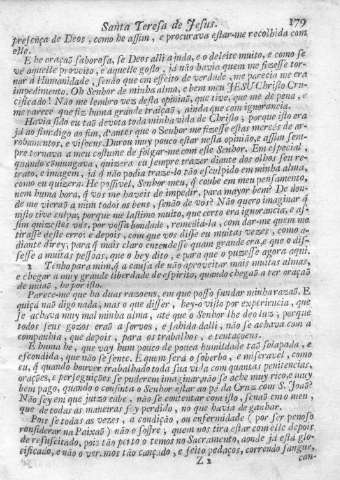 Santa Teresa de Jesus. 179
presença de Deos, como he assim, e procurava estar-me recolhida com
elle.
E he oraçaõ saborosa, se Deos alli ajuda, e o deleite muito, e como se
vé aquelle proveito, e aquelle gosto, já naõ havia quem me fizesse tor-
nar á Humanidade, senaõ que em effeito de verdade, me parecia me era
impedimento. Oh Senhor de minha alma, e bem meu JESU Christo Cru-
cificado! Naõ me lembro vez desta opiniaõ, que tive, que me dé pena, e
me parece que fiz huma grande traiçaõ, ainda que com ignorancia.
Havia sido eu taõ devota toda minha vida de Christo; porque isto era
já ao fim: digo ao fim, d'antes que o Senhor me fizesse estas mercés de ar-
robamentos, e visoens. Durou muy pouco estar nesta opiniaõ, e assim sem-
pre tornava a meu costume de folgar-me com este Senhor. Em especial,
quando commungava, quizera eu sempre trazer diante dos olhos seu re-
trato, e imagem, já q̃ naõ podia trazelo taõ esculpido em minha alma,
como eu quizera. He possivel, Senhor meu, q̃ coube em meu pensamento,
nem huma hora, q̃ vos me havieis de impedir, para mayor bem? De don-
de me vieraõ a mim todos os bens, senaõ de vós? Naõ quero imaginar q̃
nisto tive culpa, porque me lastimo muito, que certo era ignorancia, e as-
sim quizestes vós, por vossa bondade, remediala, com dar-me quem me
tirasse deste erro: e depois, com que vos visse eu muitas vezes, como a-
diante direy, para q̃ mais claro entendesse quam grande era, e que o dis-
sesse a muitas pessoas, que o hey dito, e para que o puzesse agora aqui.
Tenho para mim, q̃ a causa de naõ aproveitar mais muitas almas,
e chegar a muy grande liberdade de espirito, quando chegaõ a ter oraçaõ
de uniaõ, he por isto.
Parece-me que ha duas razoens, em que posso fundar minha razaõ. E
quiça naõ digo nada; mas o que disser, hey-o visto por experiencia, que
se achava muy mal minha alma, até que o Senhor lhe deo luz; porque
todos seus gozos eraõ a sorvos, e sahida dalli, naõ se achava com a
companhia, que depois, para os trabalhos, e tentaçoens.
E huma he, que vay hum pouco de pouca humildade taõ solapada, e
escondida, que naõ se sente. E quem será o soberbo, e miseravel, como
eu, q̃ quando houver trabalhado toda sua vida com quantas penitencias,
orações, e perseguições se puderem imaginar, naõ se ache muy rico, e muy
bem pago, quando o consinta o Senhor estar ao pé da Cruz com S. Joaõ?
Naõ sey em que juizo cabe, naõ se contentar com isto, senaõ em o meu,
que de todas as maneiras foy perdido, no que havia de ganhar.
Pois se todas as vezes, a condiçaõ, ou enfermidade (por ser penoso
considerar na Paixaõ) naõ o soffre; quem nos tira estar com elle depois
de resuscitado, pois taõ perto o temos no Sacramento, aonde já está glo-
rificado, e naõ o veremos taõ cansado, e feito pedaços, correndo sangue,
Z 2 can-